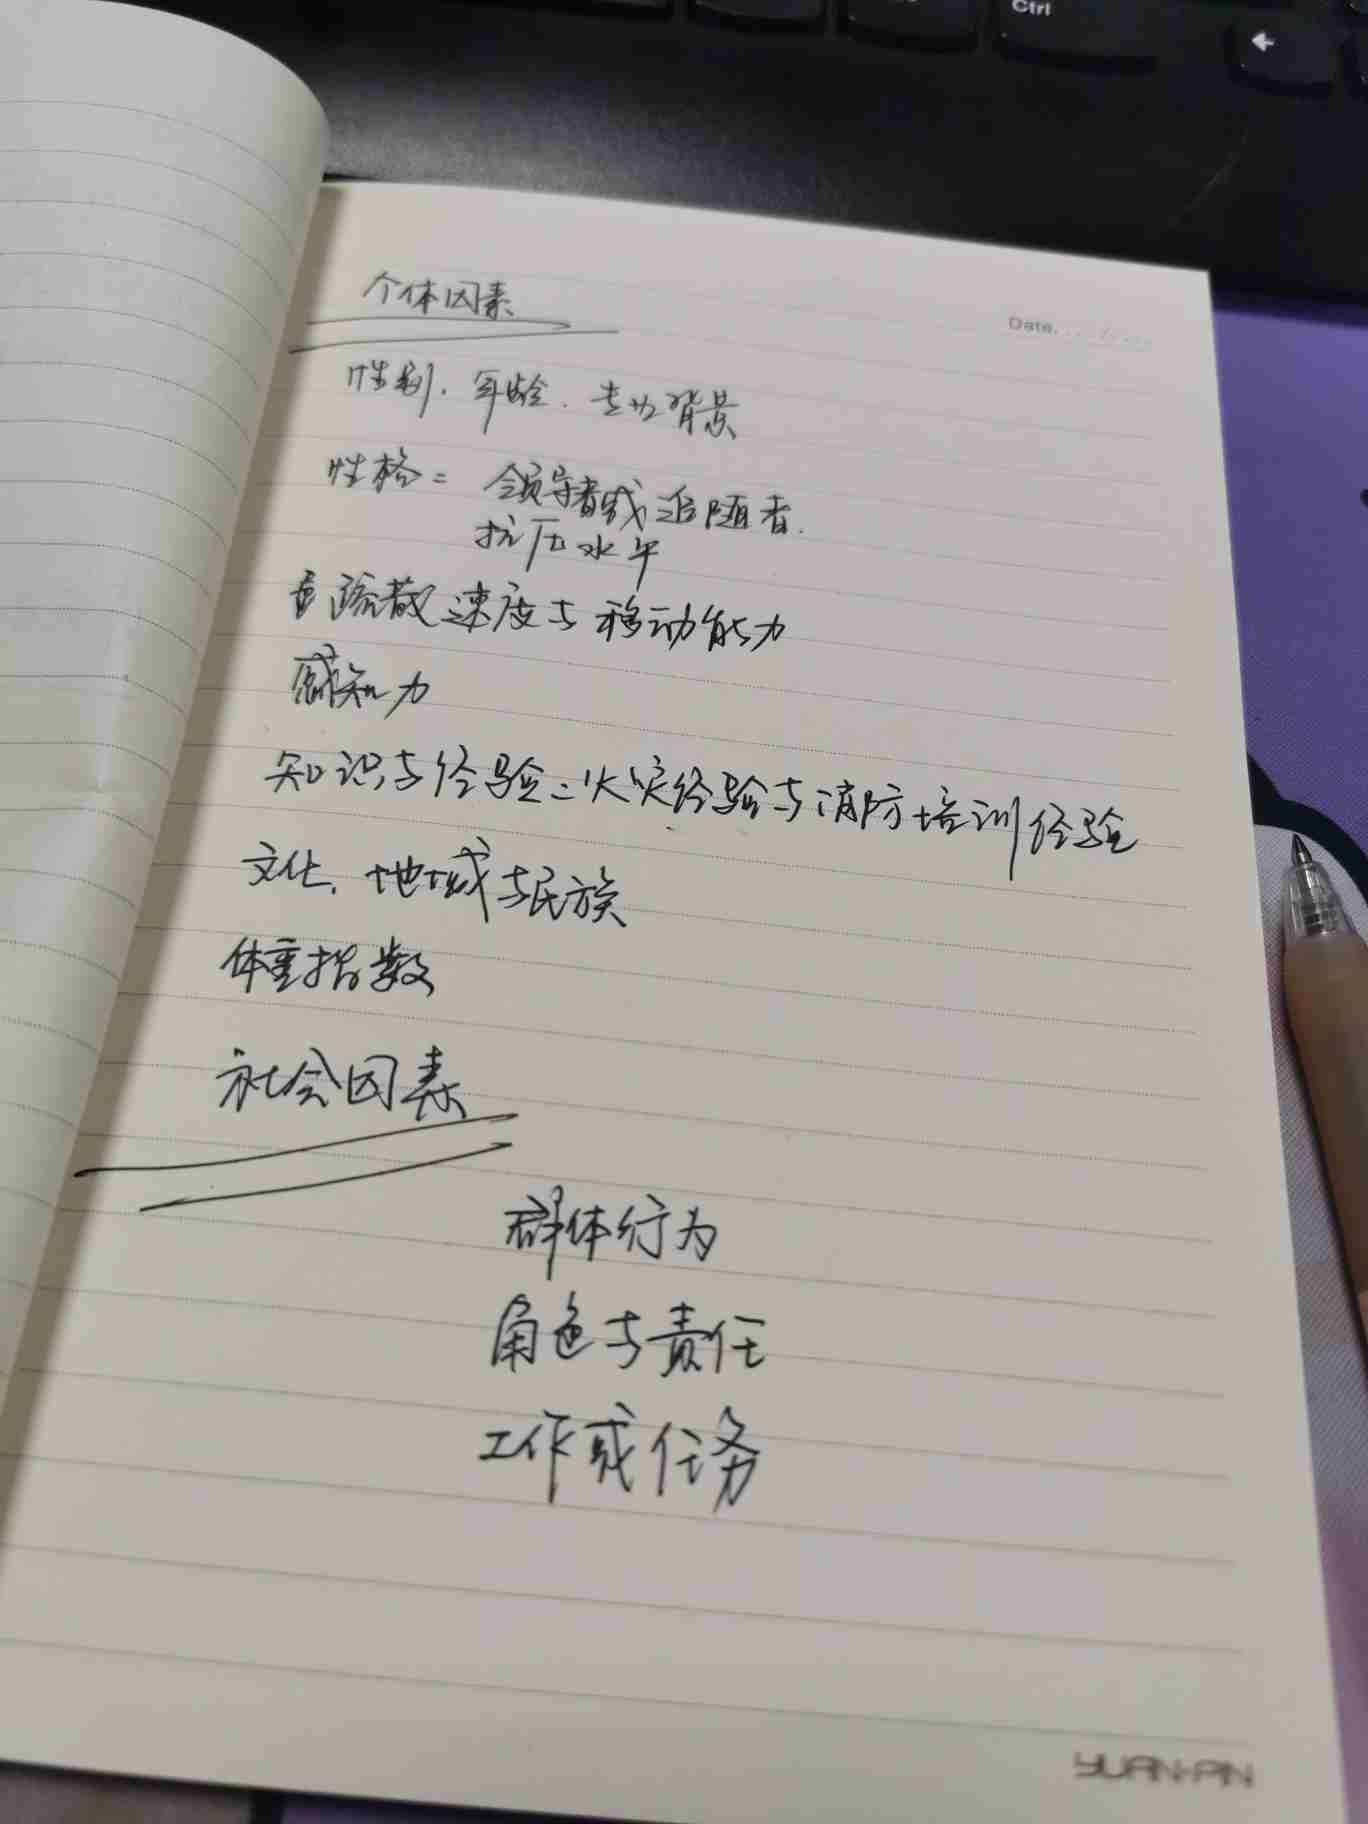 Ctrl
Date.
个体因素
性别、年龄、专业背景
性格：领导者或追随者.
抗压水平
疏散速度与移动能力
感知力
知识与经验：火灾经验与消防培训经验
文化、地域与民族
体重指数
社会因素
群体行为
角色与责任
工作或任务
YUAN·PIN